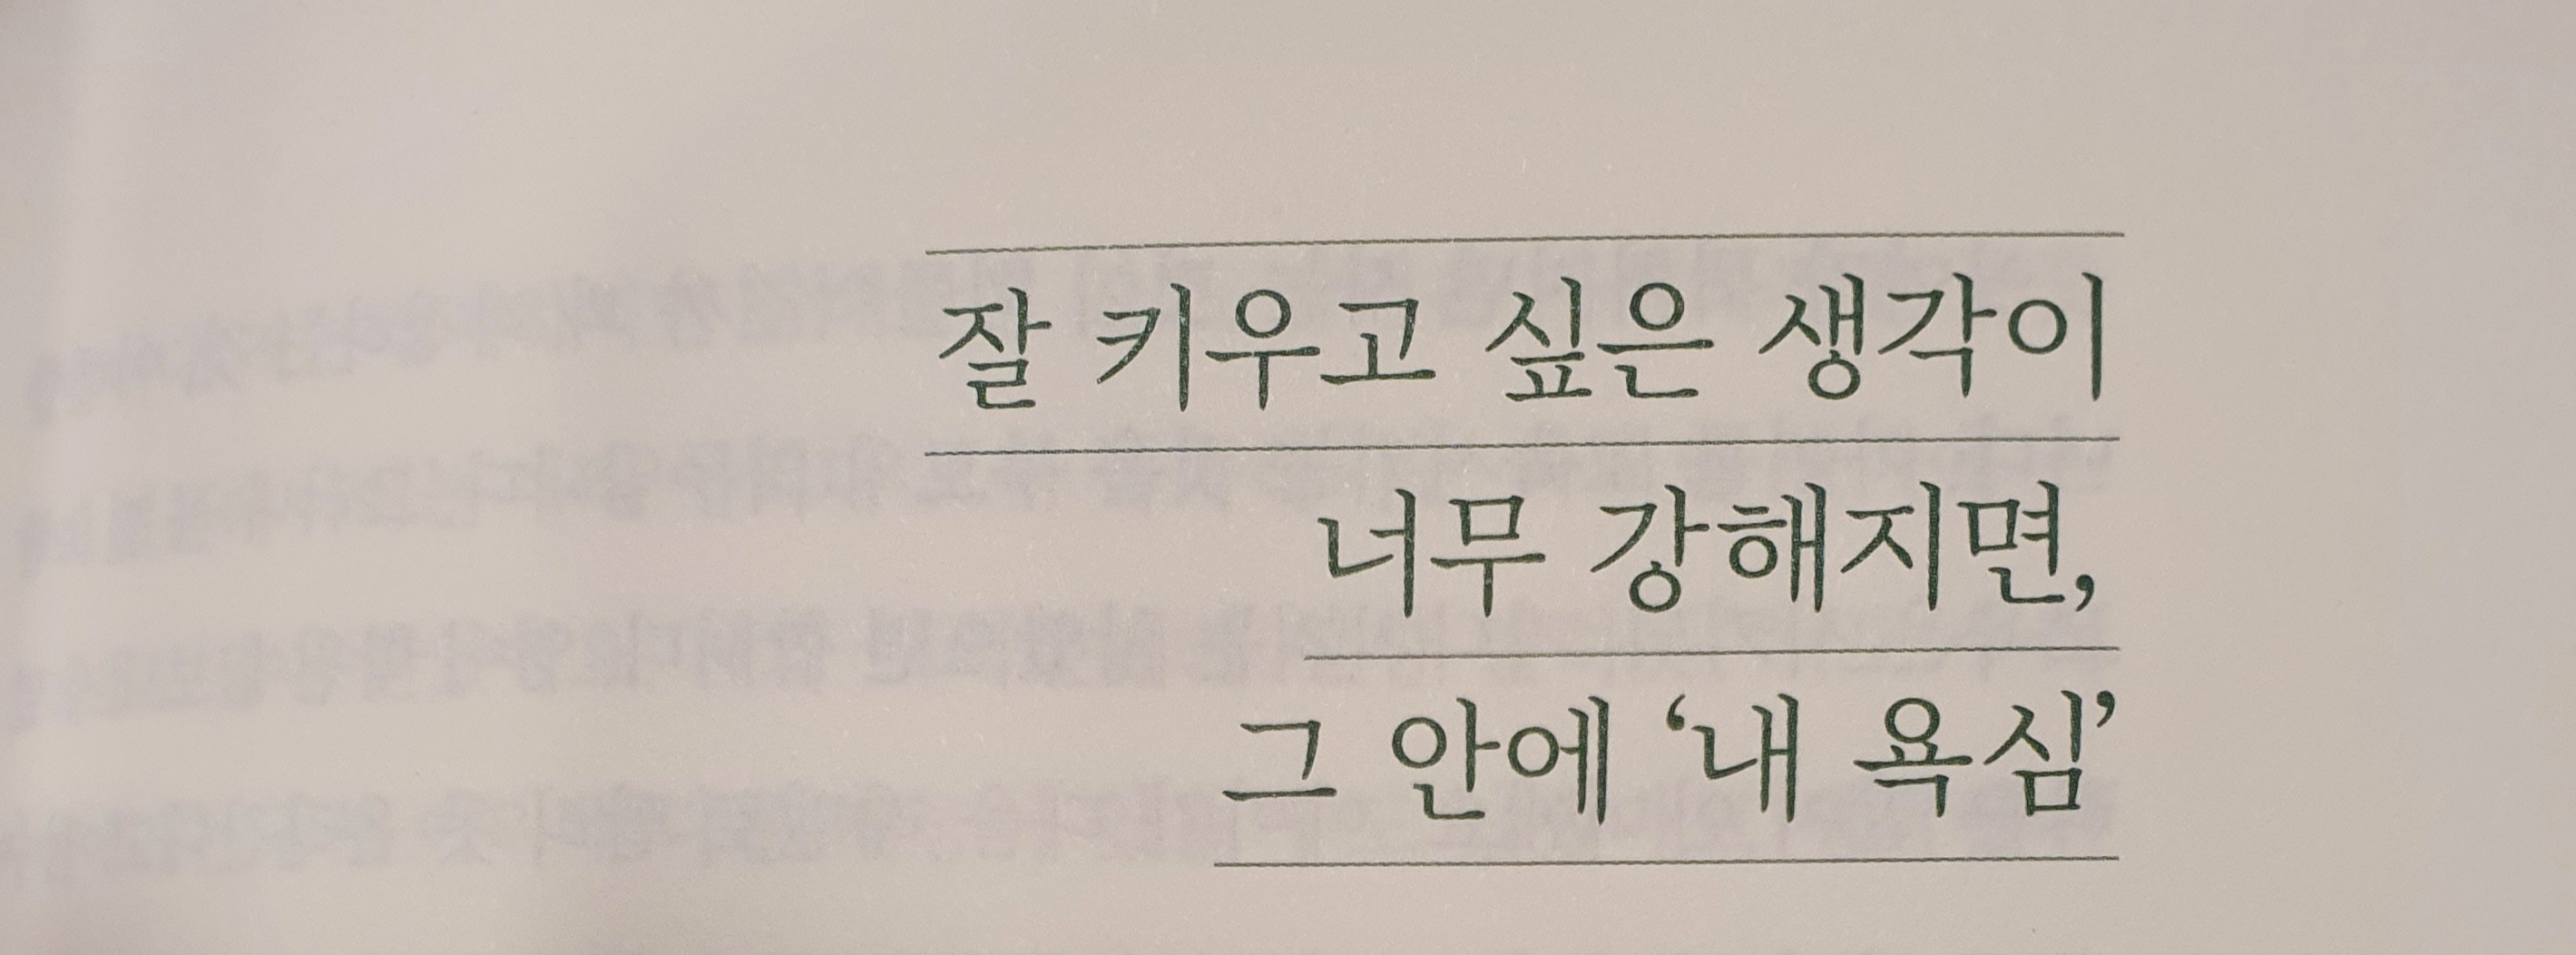 잘 키우고 싶은 생각이
너무 강해지면,
그 안에 ‘내 욕심’